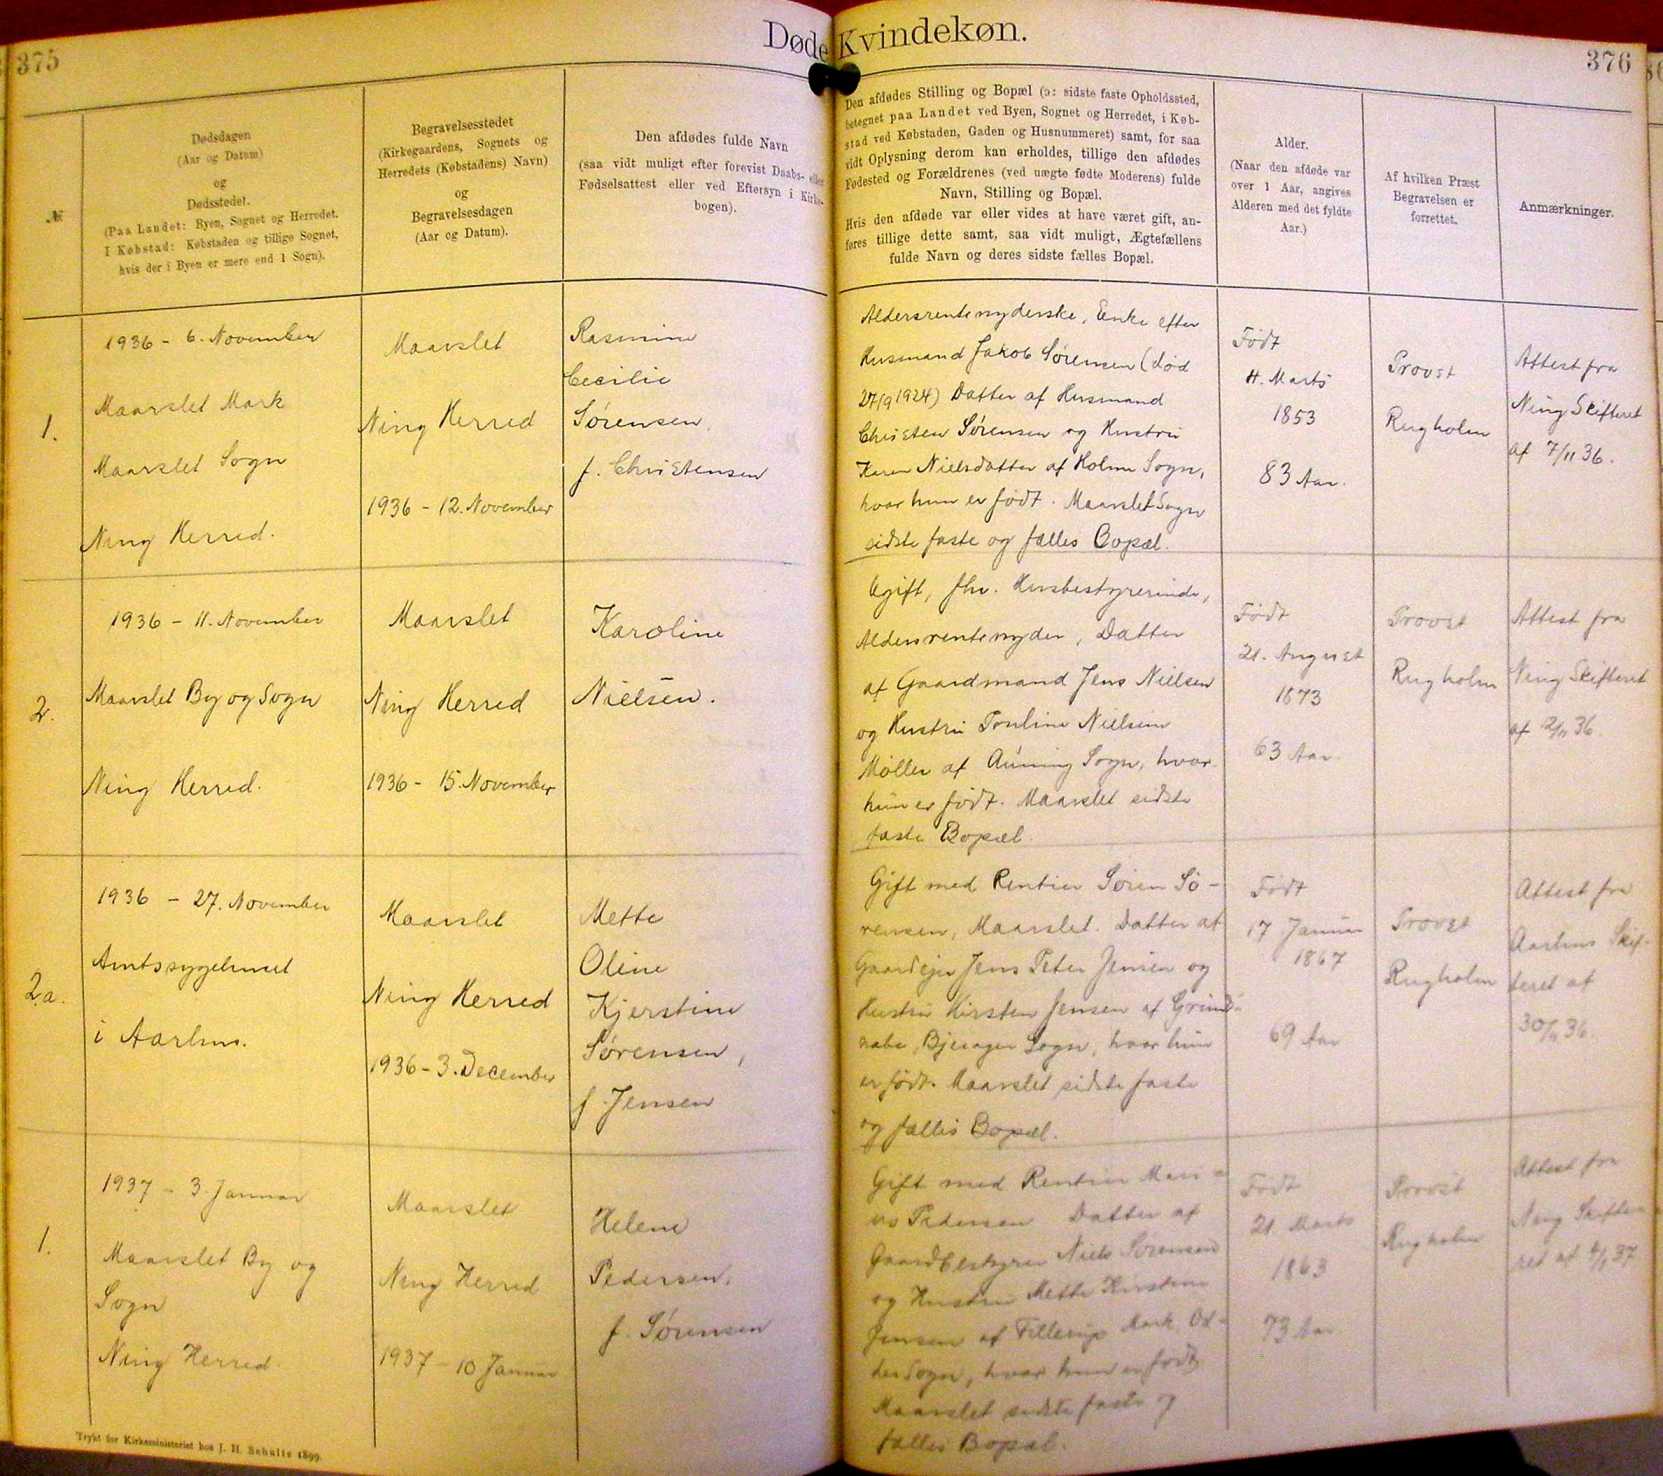 375
Døde Kvindekøn.
376
№
Dødsdagen
(Aar og Datum)
og
Dødsstedet.
(Paa Landet: Byen, Sognet og Herredet.
I Købstad: Købstaden og tillige Sognet,
hvis der i Byen er mere end 1 Sogn).
Begravelsesstedet
(Kirkegaardens, Sognets og
Herredets (Købstadens) Navn)
og
Begravelsesdagen
(Aar og Datum).
Den afdødes fulde Navn
(saa vidt muligt efter forevist Daabs- eller
Fødselsattest eller ved Eftersyn i Kirke-
bogen).
Den afdødes Stilling og Bopæl (ɔ: sidste faste Opholdssted,
betegnet paa Landet ved Byen, Sognet og Herredet, i Køb-
stad ved Købstaden, Gaden og Husnummeret) samt, for saa
vidt Oplysning derom kan erholdes, tillige den afdødes
Fødested og Forældrenes (ved uægte fødte Moderens) fulde
Navn, Stilling og Bopæl.
Hvis den afdøde var eller vides at have været gift, an-
føres tillige dette samt, saa vidt muligt, Ægtefællens
fulde Navn og deres sidste fælles Bopæl.
Alder.
(Naar den afdøde var
over 1 Aar, angives
Alderen med det fyldte
Aar.)
Af hvilken Præst
Begravelsen er
forrettet.
Anmærkninger.
1.
1936 - 6. November
Maarslet Mark
Maarslet Sogn
Ning Herred.
Maarslet
Ning Herred
1936 - 12. November
Rasmine
Cecilie
Sørensen,
f. Christensen
Aldersrentenyderske, Enke efter
Husmand Jakob Sørensen (død
27/9 1924) Datter af Husmand
Christen Sørensen og Hustru
Karen Nielsdatter af Holme Sogn,
hvor hun er født. Maarslet Sogn
sidste faste og fælles Bopæl.
Født
11. Marts
1853
83 Aar.
Provst
Rugholm
Attest fra
Ning Skifteret
af 7/11 36.
2.
1936 - 11. November
Maarslet By og Sogn
Ning Herred.
Maarslet
Ning Herred
1936 - 15. November
Karoline
Nielsen.
Ugift, fhv. Husbestyrerinde,
Aldersrentenyder, Datter
af Gaardmand Jens Nielsen
og Hustru Pouline Nielsine
Møller af Auning Sogn, hvor
hun er født. Maarslet sidste
faste Bopæl.
Født
21. August
1873
63 Aar
Provst
Rugholm
Attest fra
Ning Skifteret
af 36.
2a.
1936 - 27. November
Amtssygehuset
i Aarhus.
Maarslet
Ning Herred
1936 - 3. December
Mette
Oline
Kjerstine
Sørensen,
f. Jensen
Gift med Rentier Søren Sø-
rensen, Maarslet. Datter af
Gaardejer Jens Peter Jensen og
Hustru Kirsten Jensen af
Bjerager Sogn, hvor hun
er født. Maarslet sidste faste
og fælles Bopæl.
Født
17 Januar
1867
69 Aar
Provst
Rugholm
Attest fra
Aarhus Skif-
teret af
30/11 36.
1.
1937 - 3. Januar
Maarslet By og
Sogn
Ning Herred
Maarslet
Ning Herred
1937 - 10 Januar
Helene
Pedersen,
f. Sørensen
Gift med Rentier Mari-
us Pedersen Datter af
Gaardbestyrer Niels Sørensen
og Hustru Mette Kirstine
Jensen af Fillerup Mark, Od-
der Sogn, hvor hun er født
Maarslet sidste faste og
fælles Bopæl.
Født
21. Marts
1863
73 Aar
Provst
Rugholm
Attest fra
Ning Skifte-
ret af 4/1 37
Trykt for Kirkeministeriet hos J. H. Schultz 1899.